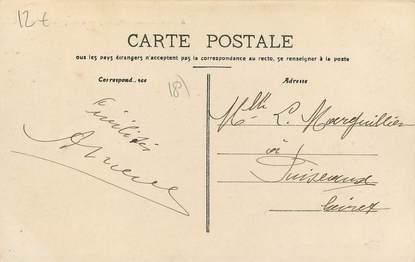 12€
CARTE POSTALE
ous les pays étrangers n'acceptent pas la correspondance au recto, se renseigner à la poste
Correspond nce
Adresse
18)
Amitiés
Mlle L. Marguillier
à
Puiseaux
Loiret